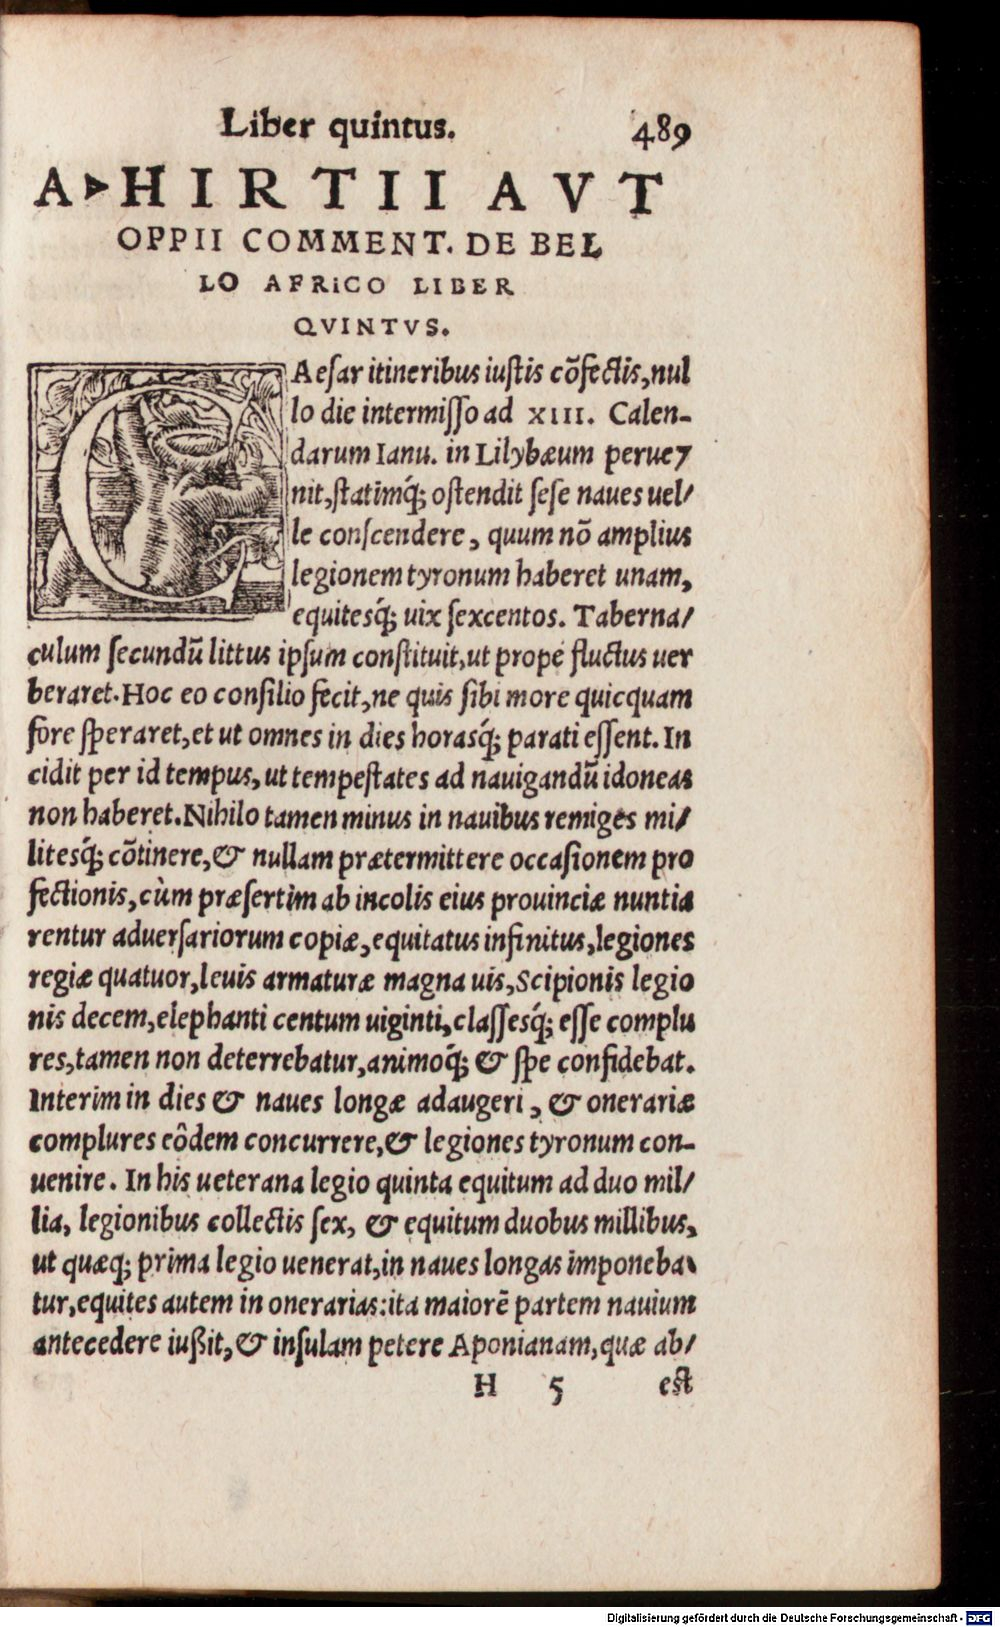 Liber quintus. 489
A▸HIRTII AVT
OPPII COMMENT. DE BEL
LO AFRiCO LIBER
QVINTVS.
CAeſar itineribus iuſtis cõfectis, nul
lo die intermiſſo ad XIII. Calen-
darum Ianu. in Lilybæum perue⁊
nit, ſtatimq́; oſtendit ſeſe naues uel/
le conſcendere, quum nõ amplius
legionem tyronum haberet unam,
equitesq́; uix ſexcentos. Taberna/
culum ſecundũ littus ipſum conſtituit, ut prope fluctus uer
beraret. Hoc eo conſilio fecit, ne quis ſibi more quicquam
fore ſperaret, et ut omnes in dies horasq́; parati eſſent. In
cidit per id tempus, ut tempeſtates ad nauigandũ idoneas
non haberet. Nihilo tamen minus in nauibus remiges mi/
litesq́; cõtinere, & nullam prætermittere occaſionem pro
fectionis, cùm præſertim ab incolis eius prouinciæ nuntia
rentur aduerſariorum copiæ, equitatus infinitus, legiones
regiæ quatuor, leuis armaturæ magna uis, Scipionis legio
nis decem, elephanti centum uiginti, claſſesq́; eſſe complu
res, tamen non deterrebatur, animoq́; & ſpe confidebat.
Interim in dies & naues longæ adaugeri, & onerariæ
complures eôdem concurrere, & legiones tyronum con-
uenire. In his ueterana legio quinta equitum ad duo mil/
lia, legionibus collectis ſex, & equitum duobus millibus,
ut quæq; prima legio uenerat, in naues longas imponeba\
tur, equites autem in onerarias: ita maiorẽ partem nauium
antecedere iußit, & inſulam petere Aponianam, quæ ab/
H 5 eſt
Digitalisierung gefördert durch die Deutsche Forschungsgemeinschaft - DFG